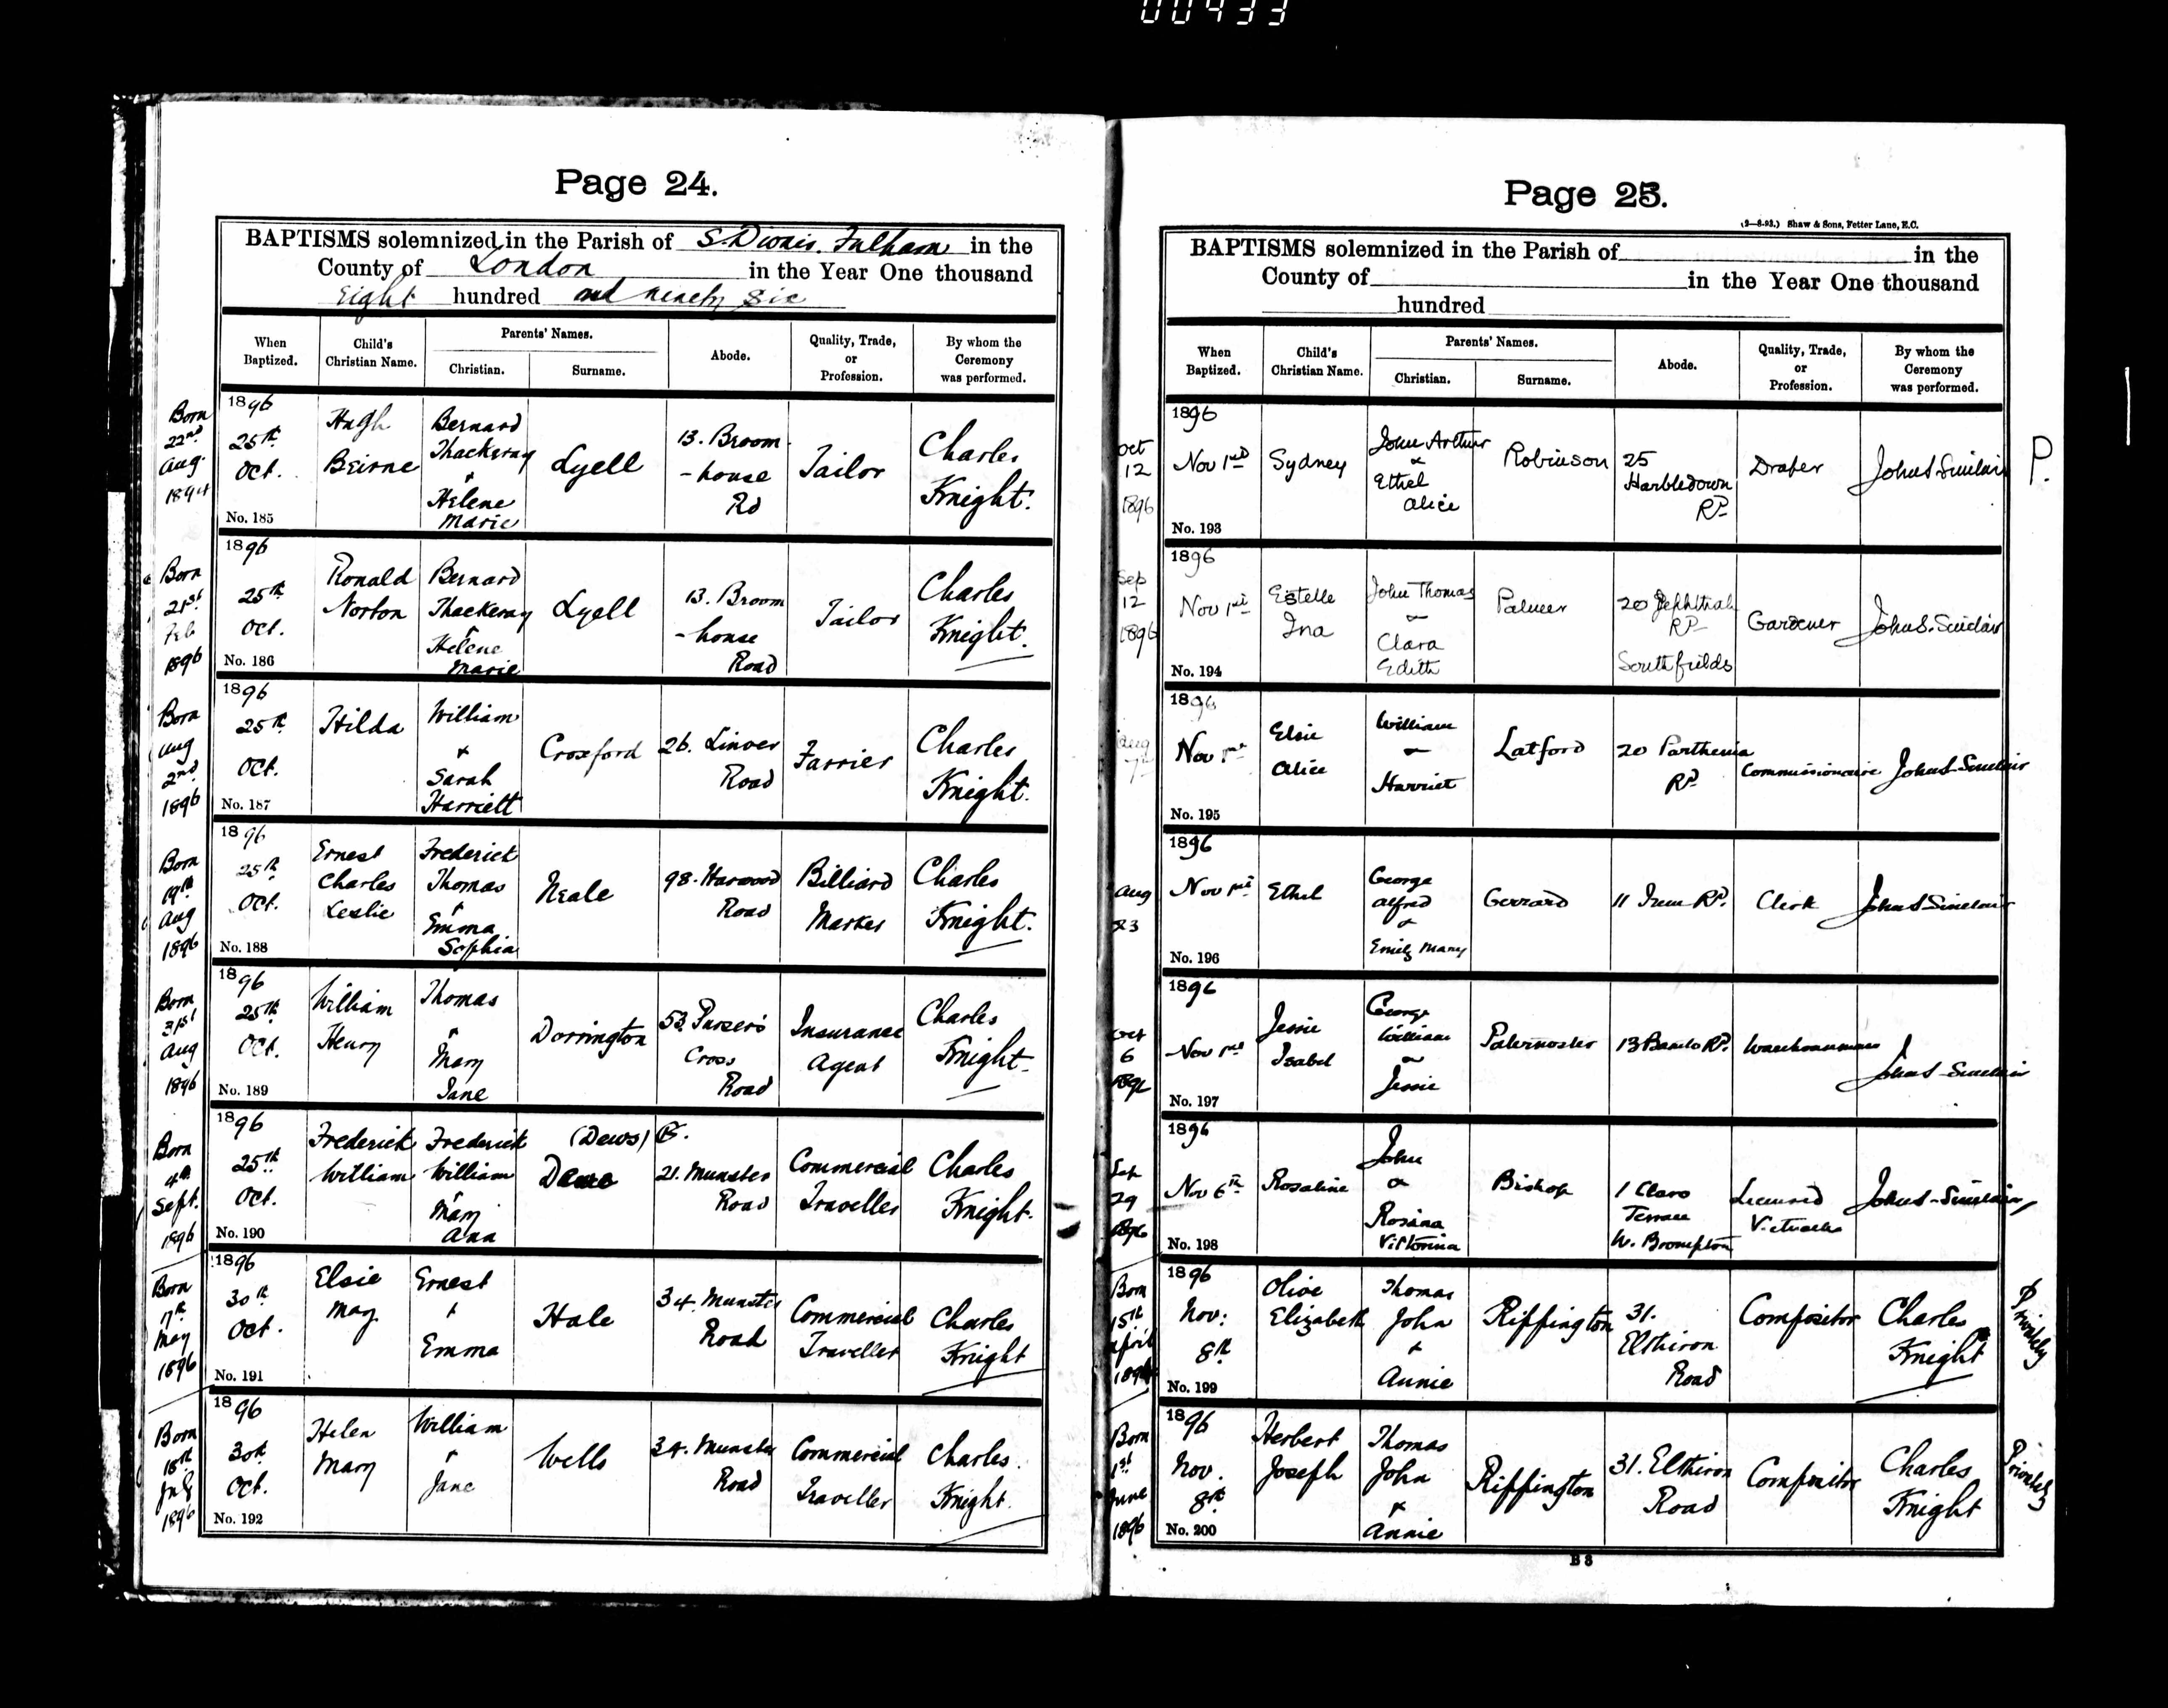 00433
Page 24.
BAPTISMS solemnized in the Parish of S. Dionis. Fulham in the
County of London in the Year One thousand
Eight hundred and ninety six
When Baptized.
Child's Christian Name.
Parents' Names.
Christian.
Surname.
Abode.
Quality, Trade, or Profession.
By whom the Ceremony was performed.
Born 22nd Aug. 1894
1896 25th Oct. No. 185
Hugh Beirne
Bernard Thackeray + Helene Marie
Lyell
13. Broom-house Rd
Tailor
Charles Knight.
Born 21st Feb 1896
1896 25th Oct. No. 186
Ronald Norton
Bernard Thackeray + Helene Marie
Lyell
13. Broom-house Road
Tailor
Charles Knight.
Born Aug 2nd 1896
1896 25th Oct. No. 187
Hilda
William + Sarah Harriett
Croxford
26. Linver Road
Farrier
Charles Knight.
Born 19th Aug 1896
1896 25th Oct. No. 188
Ernest Charles Leslie
Frederick Thomas + Emma Sophia
Neale
98. Harwood Road
Billiard Marker
Charles Knight.
Born 31st Aug 1896
1896 25th Oct. No. 189
William Henry
Thomas + Mary Jane
Dorrington
53. Purser's Cross Road
Insurance Agent
Charles Knight.
Born 4th Sept. 1896
1896 25th Oct. No. 190
Frederick William
Frederick William + Mary Ann
(Dews)
21. Munster Road
Commercial Traveller
Charles Knight.
Born 17th May 1896
1896 30th Oct. No. 191
Elsie May
Ernest + Emma
Hale
34. Munster Road
Commercial Traveller
Charles Knight
Born 18th July 1896
1896 30th Oct. No. 192
Helen Mary
William + Jane
Wells
34. Munster Road
Commercial Traveller
Charles Knight.
Page 25.
(2—8-93.) Shaw & Sons, Fetter Lane, E.C.
BAPTISMS solemnized in the Parish of in the
County of in the Year One thousand
hundred
When Baptized.
Child's Christian Name.
Parents' Names.
Christian.
Surname.
Abode.
Quality, Trade, or Profession.
By whom the Ceremony was performed.
Oct 12 1896
1896 Nov 1st No. 193
Sydney
John Arthur & Ethel Alice
Robinson
25 Harbledown Rd
Draper
John S. Sinclair
P.
Sep 12 1896
1896 Nov 1st No. 194
Estelle Ina
John Thomas & Clara Edith
Palmer
20 Jephthah Rd Southfields
Gardener
John S. Sinclair
Aug 7th
1896 Nov 1st No. 195
Elsie Alice
William & Harriet
Latford
20 Parthenia Rd
Commissionaire
John S. Sinclair
Aug 23
1896 Nov 1st No. 196
Ethel
George Alfred & Emily Mary
Gerrard
11 Irene Rd.
Clerk
John S. Sinclair
Oct 6 1896
1896 Nov 1st No. 197
Jessie Isabel
George William & Jessie
Paternoster
13 Rd.
Warehouseman
John S. Sinclair
Sep 29 1896
1896 Nov 6th No. 198
Rosaline
John & Rosina Victorina
Bishop
1 Claro Terrace W. Brompton
Licensed Victualler
John S. Sinclair
Born 15th April
1896 Nov: 8th No. 199
Olive Elizabeth
Thomas John + Annie
Riffington
31. Elthiron Road
Compositor
Charles Knight
Privately
Born 1st June 1896
1896 Nov. 8th No. 200
Herbert Joseph
Thomas John + Annie
Riffington
31. Elthiron Road
Compositor
Charles Knight
Privately
B 3